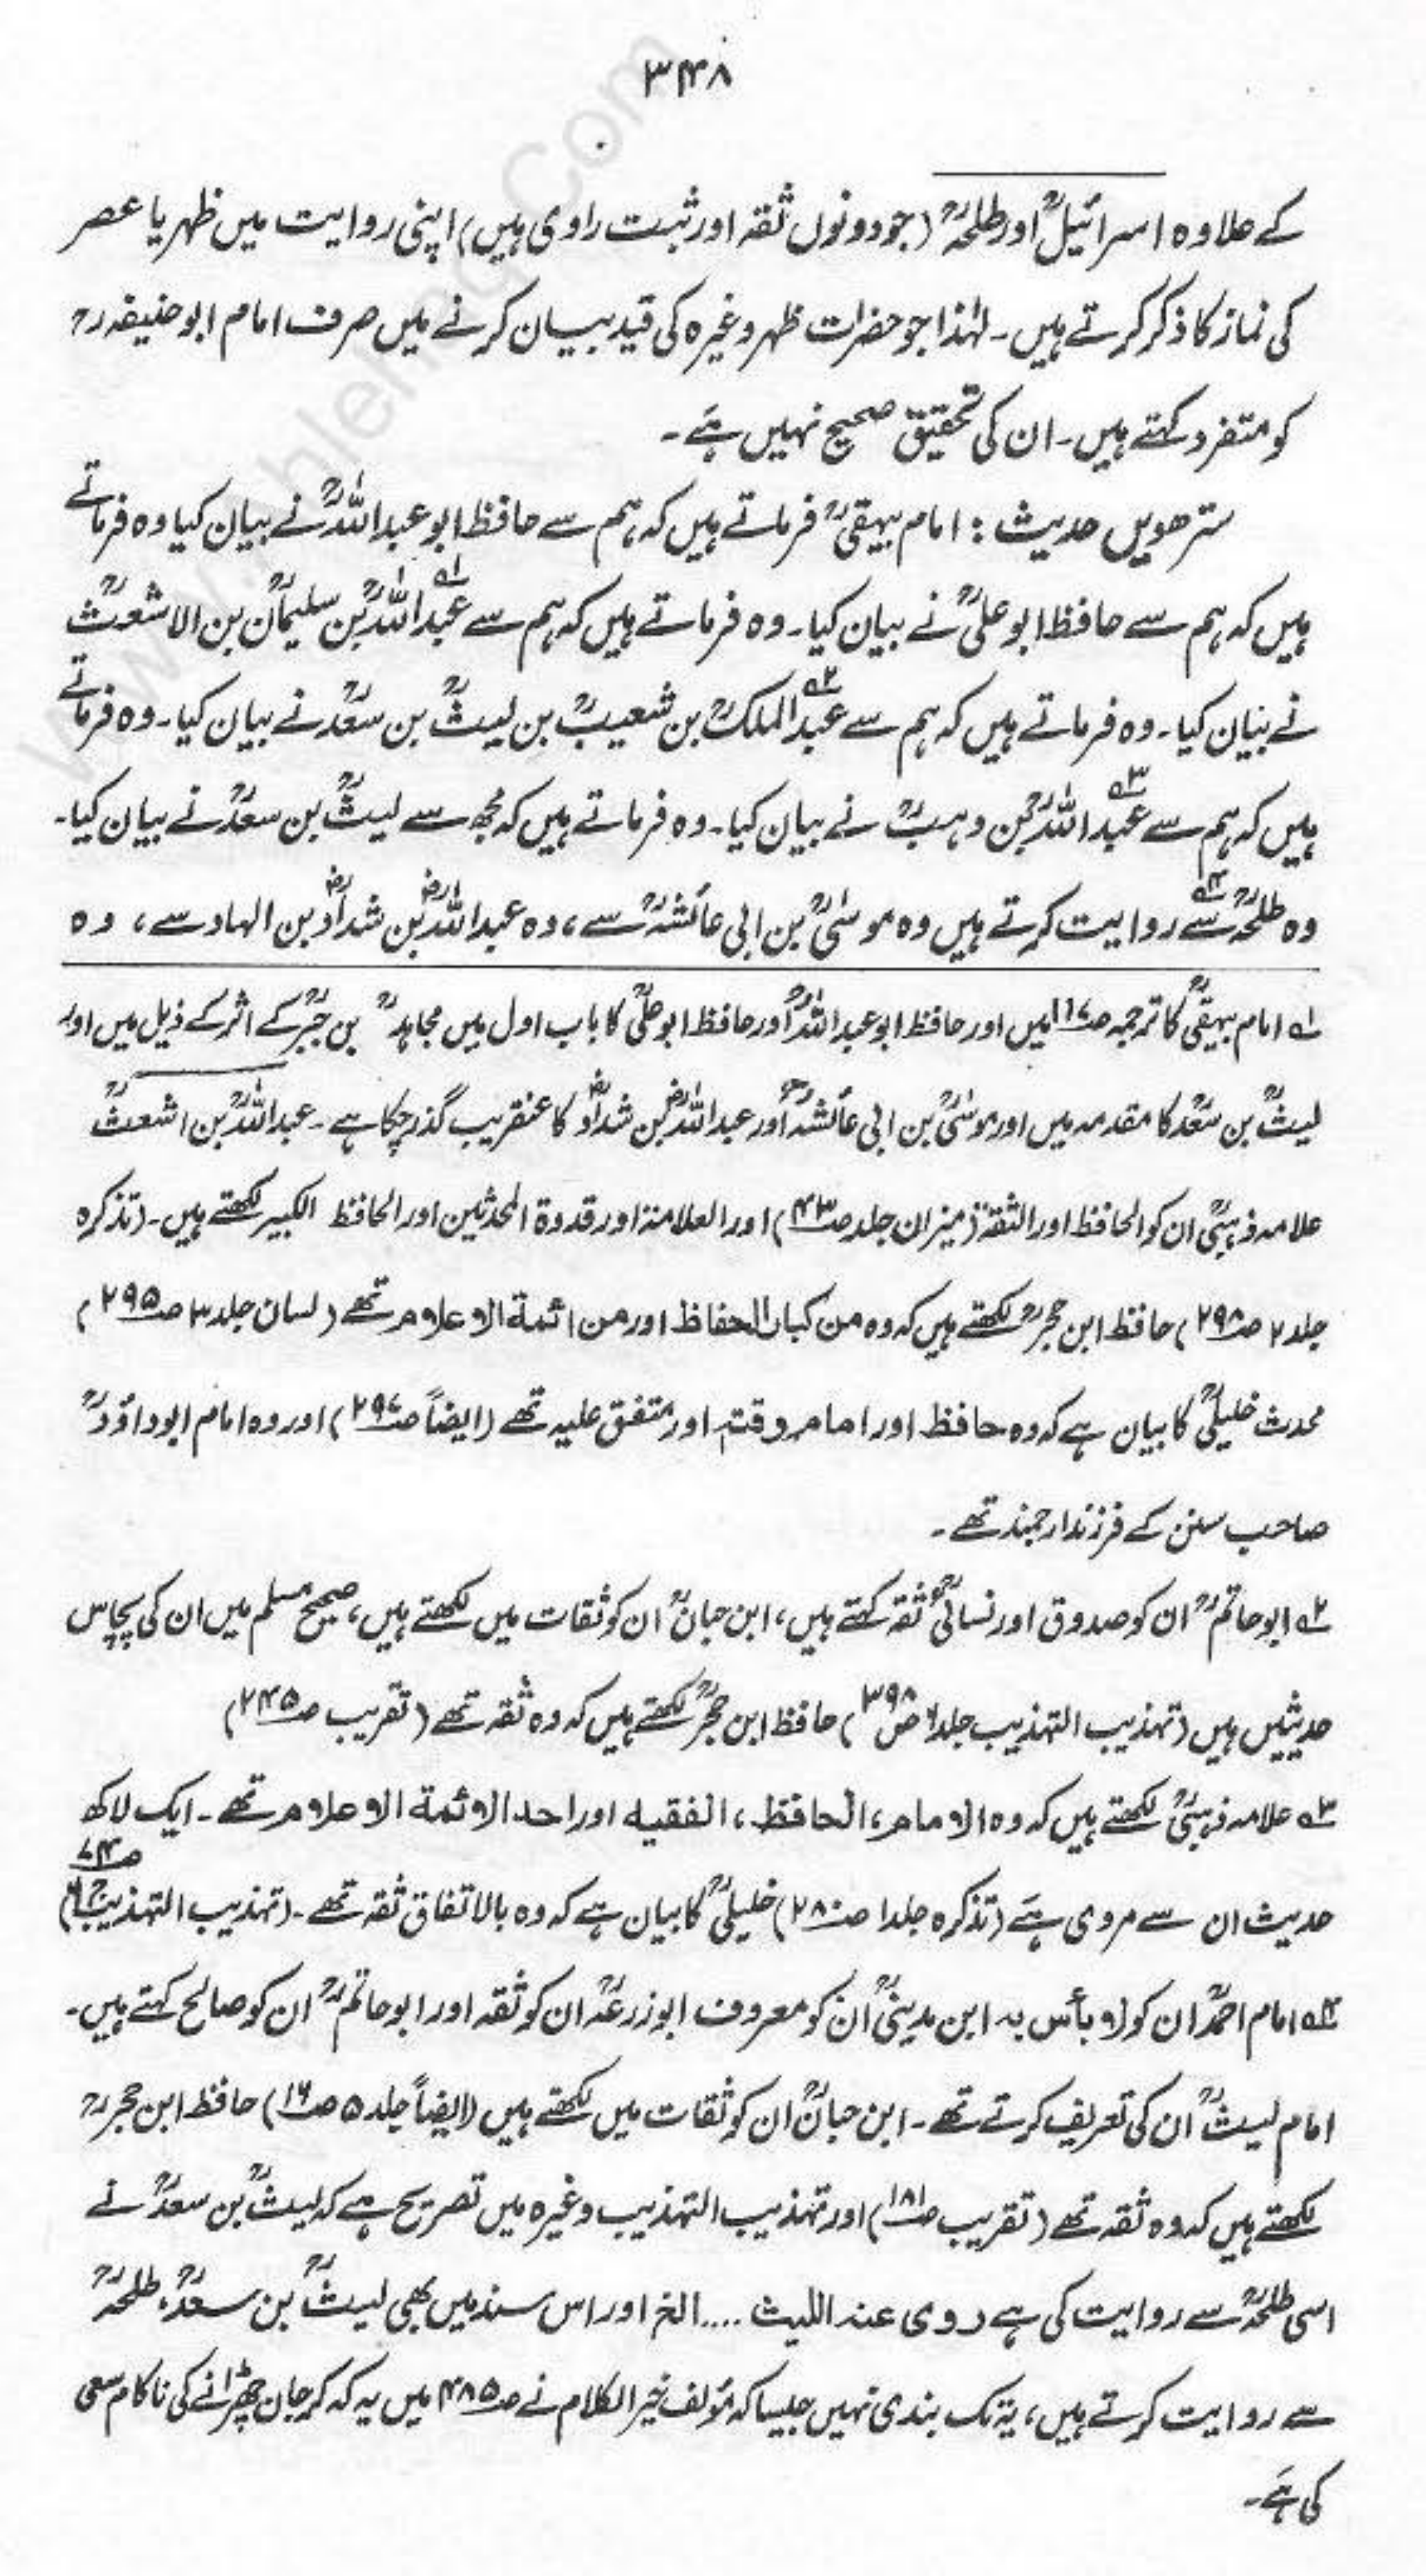 ۳۴۸
کے علاوہ اسرائیلؒ اور طلحہؒ (جو دونوں ثقہ اور ثبت راوی ہیں) اپنی روایت میں ظہر یا عصر
کی نماز کا ذکر کرتے ہیں۔ لہٰذا جو حضرات ظہر وغیرہ کی قید بیان کرنے میں صرف امام ابو حنیفہ رح
کو متفرد کہتے ہیں۔ ان کی تحقیق صحیح نہیں ہے۔
سترھویں حدیث : امام بیہقیؒ فرماتے ہیں کہ ہم سے حافظ ابو عبد اللہؒ نے بیان کیا وہ فرماتے
ہیں کہ ہم سے حافظ ابو علیؒ نے بیان کیا۔ وہ فرماتے ہیں کہ ہم سے عبد اللہؒ۱ بن سلیمانؒ بن الاشعثؒ
نے بیان کیا۔ وہ فرماتے ہیں کہ ہم سے عبد الملکؒ۲ بن شعیبؒ بن لیثؒ بن سعدؒ نے بیان کیا۔ وہ فرماتے
ہیں کہ ہم سے عبد اللہؒ۳ بن وہبؒ نے بیان کیا۔ وہ فرماتے ہیں کہ مجھ سے لیثؒ بن سعدؒ نے بیان کیا۔
وہ طلحہؒ۴ سے روایت کرتے ہیں وہ موسیٰؒ بن ابی عائشہؒ سے، وہ عبد اللہؓ بن شدادؓ بن الہاد سے، وہ
۱ امام بیہقیؒ کا ترجمہ ص۱۱۷ میں اور حافظ ابو عبد اللہؒ اور حافظ ابو علیؒ کا باب اول میں مجاہدؒ بن جبرؒ کے اثر کے ذیل میں اور
لیثؒ بن سعدؒ کا مقدمہ میں اور موسیٰؒ بن ابی عائشہؒ اور عبد اللہؓ بن شدادؓ کا عنقریب گذر چکا ہے۔ عبد اللہؒ بن اشعثؒ
علامہ ذہبیؒ ان کو الحافظ اور الثقۃ (میزان جلد ص۴۳) اور العلامۃ اور قدوۃ المحدثین اور الحافظ الکبیر لکھتے ہیں۔ (تذکرہ
جلد ۲ ص۲۹۸) حافظ ابن حجرؒ لکھتے ہیں کہ وہ من کبار الحفاظ اور من ائمۃ الاعلام تھے (لسان جلد ۳ ص۲۹۵)
محدث خلیلیؒ کا بیان ہے کہ وہ حافظ اور امام وقتہ اور متفق علیہ تھے (ایضاً ص۲۹۷) اور وہ امام ابوداؤدؒ
صاحب سنن کے فرزند ارجمند تھے۔
۲ ابو حاتمؒ ان کو صدوق اور نسائیؒ ثقہ کہتے ہیں، ابن حبانؒ ان کو ثقات میں لکھتے ہیں، صحیح مسلم میں ان کی پچاس
حدیثیں ہیں (تہذیب التہذیب جلد۶ ص۳۹۸) حافظ ابن حجرؒ لکھتے ہیں کہ وہ ثقہ تھے (تقریب ص۲۴۵)
۳ علامہ ذہبیؒ لکھتے ہیں کہ وہ الامام، الحافظ، الفقیہ اور احد الائمۃ الاعلام تھے۔ ایک لاکھ
حدیث ان سے مروی ہے (تذکرہ جلد۱ ص۲۸۰) خلیلیؒ کا بیان ہے کہ وہ بالاتفاق ثقہ تھے۔ (تہذیب التہذیب
۴ امام احمدؒ ان کو لا بأس بہ ابن مدینیؒ ان کو معروف ابو زرعہؒ ان کو ثقہ اور ابو حاتمؒ ان کو صالح کہتے ہیں۔
امام لیثؒ ان کی تعریف کرتے تھے۔ ابن حبانؒ ان کو ثقات میں لکھتے ہیں (ایضاً جلد ۵ ص۱۶) حافظ ابن حجر رح
لکھتے ہیں کہ وہ ثقہ تھے (تقریب ص۱۸۱) اور تہذیب التہذیب وغیرہ میں تصریح ہے کہ لیثؒ بن سعدؒ نے
اسی طلحہؒ سے روایت کی ہے روی عنہ اللیث .... الخ اور اس سند میں بھی لیثؒ بن سعدؒ، طلحہؒ
سے روایت کرتے ہیں، یہ تک بندی نہیں جیسا کہ مؤلف خیر الکلام نے ص۴۸۵ میں یہ کہہ کر جان چھڑانے کی ناکام سعی
کی ہے۔